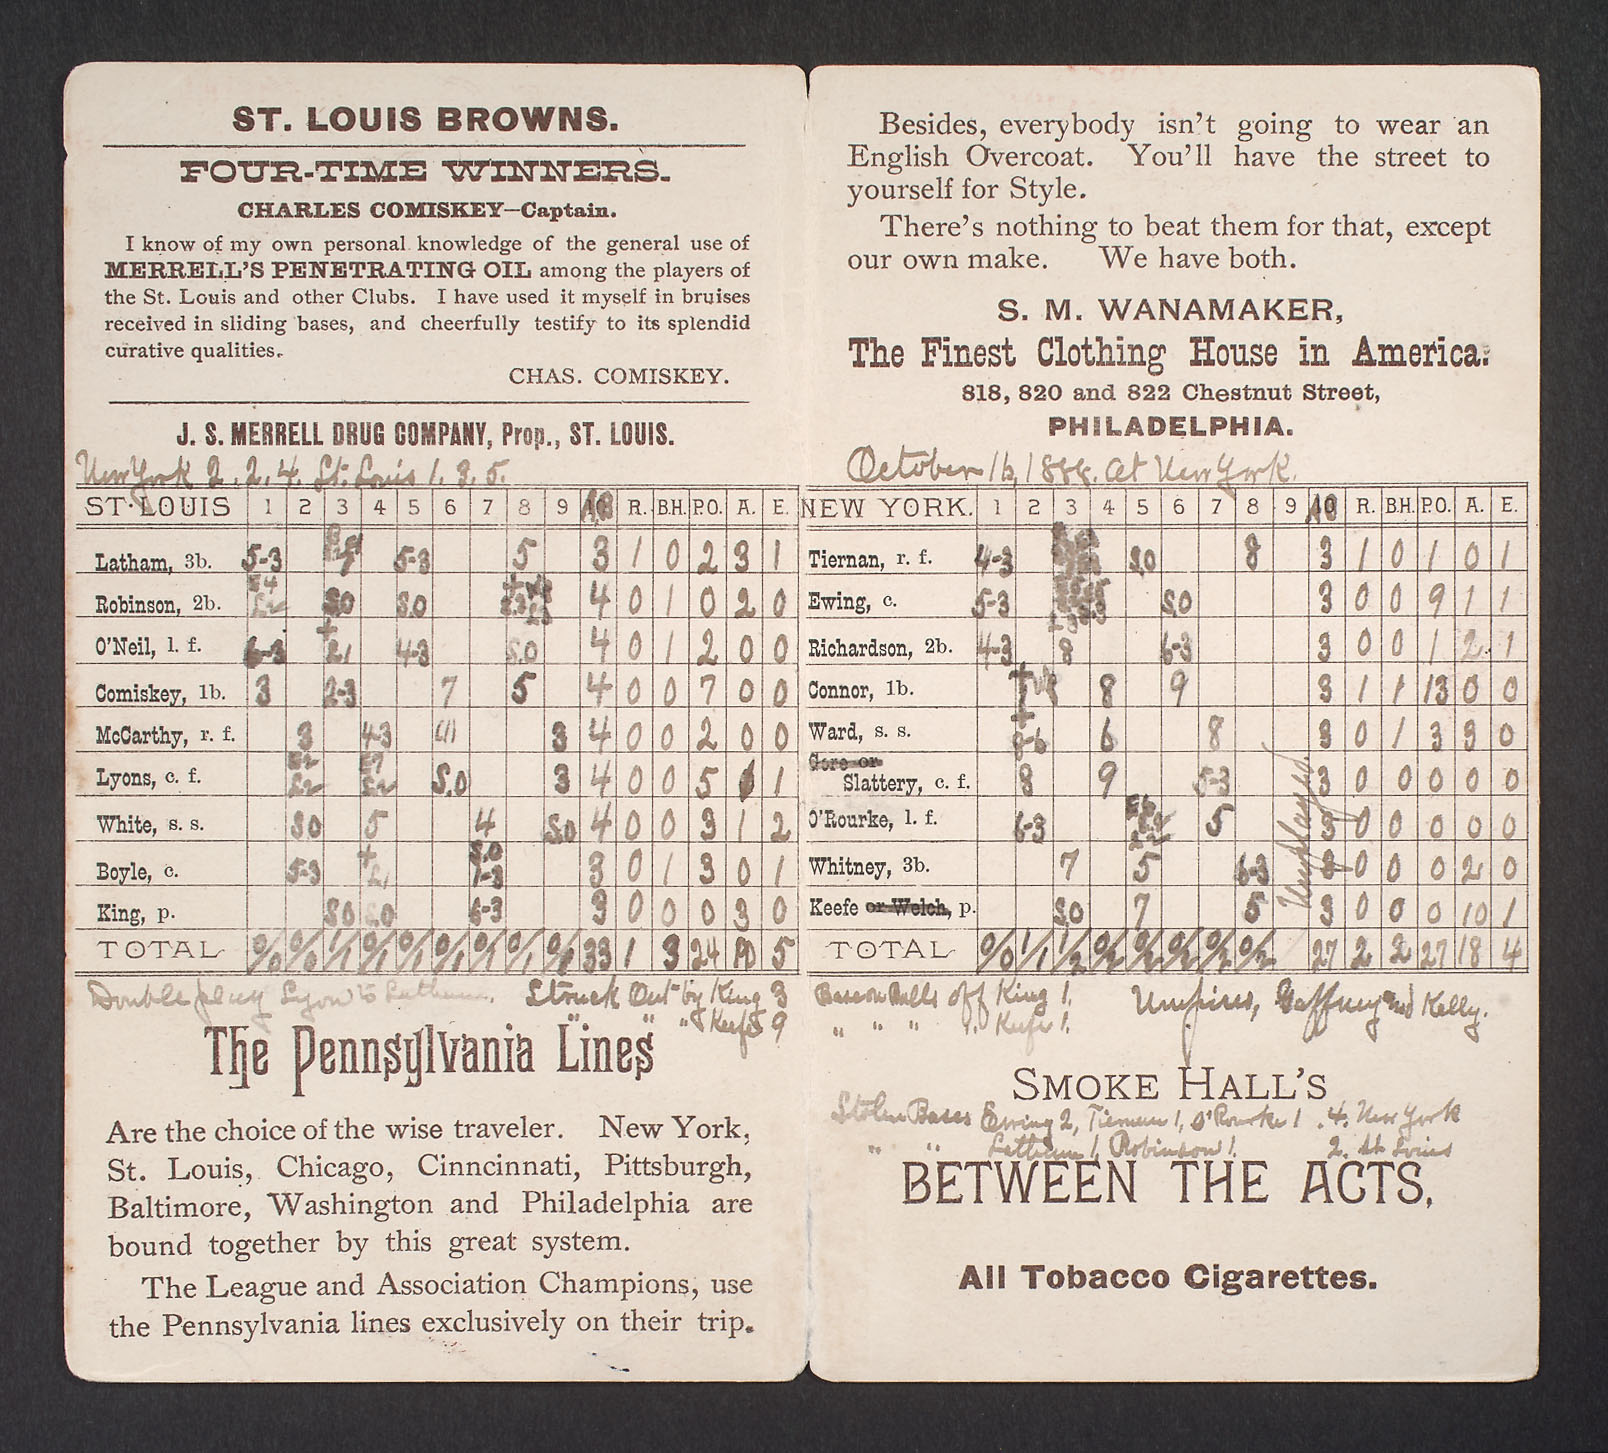 ST. LOUIS BROWNS.
FOUR-TIME WINNERS.
CHARLES COMISKEY—Captain.
I know of my own personal knowledge of the general use of
MERRELL'S PENETRATING OIL among the players of
the St. Louis and other Clubs. I have used it myself in bruises
received in sliding bases, and cheerfully testify to its splendid
curative qualities.
CHAS. COMISKEY.
J. S. MERRELL DRUG COMPANY, Prop., ST. LOUIS.
New York 2. 2. 4. St. Louis 1. 3. 5.
ST. LOUIS 1 2 3 4 5 6 7 8 9 R. B.H. P.O. A. E.
Latham, 3b. 5-3 5-3 5 3 1 0 2 3 1
Robinson, 2b. S.O S.O 4 0 1 0 2 0
O'Neil, l. f. 6-3 4-3 S.O 4 0 1 2 0 0
Comiskey, 1b. 3 2-3 7 5 4 0 0 7 0 0
McCarthy, r. f. 3 4-3 3 4 0 0 2 0 0
Lyons, c. f. S.O 3 4 0 0 5 1
White, s. s. S O 5 4 S.O 4 0 0 3 1 2
Boyle, c. 5-3 S.O 1-3 3 0 1 3 0 1
King, p. S O S.O 6-3 3 0 0 0 3 0
TOTAL 0/0 0/0 1/1 0/1 0/1 0/1 0/1 0/1 0/1 33 1 3 24 10 5
Double play Lyons to Latham. Struck Out by King 3
" " " Keefe 9
The Pennsylvania Lines
Are the choice of the wise traveler. New York,
St. Louis, Chicago, Cinncinnati, Pittsburgh,
Baltimore, Washington and Philadelphia are
bound together by this great system.
The League and Association Champions, use
the Pennsylvania lines exclusively on their trip.
Besides, everybody isn't going to wear an
English Overcoat. You'll have the street to
yourself for Style.
There's nothing to beat them for that, except
our own make. We have both.
S. M. WANAMAKER,
The Finest Clothing House in America.
818, 820 and 822 Chestnut Street,
PHILADELPHIA.
October 16, 1888. At New York.
NEW YORK. 1 2 3 4 5 6 7 8 9 R. B.H. P.O. A. E.
Tiernan, r. f. 4-3 S.O 8 3 1 0 1 0 1
Ewing, c. 5-3 S.O 3 0 0 9 1 1
Richardson, 2b. 4-3 8 6-3 3 0 0 1 2 1
Connor, 1b. 8 9 3 1 1 13 0 0
Ward, s. s. 8-6 6 8 3 0 1 3 3 0
Gore or
Slattery, c. f. 8 9 5-3 3 0 0 0 0 0
O'Rourke, l. f. 6-3 5 3 0 0 0 0 0
Whitney, 3b. 7 5 6-3 3 0 0 0 2 0
Keefe or Welch, p. S.O 7 5 3 0 0 0 10 1
Unplayed.
TOTAL 0/0 1/1 1/2 0/2 0/2 0/2 0/2 0/2 27 2 2 27 18 4
Base on Balls off King 1. Umpires, Gaffney and Kelly.
" " " " Keefe 1.
SMOKE HALL'S
Stolen Bases Ewing 2, Tiernan 1, O'Rourke 1. 4. New York
" " Latham 1, Robinson 1. 2. St Louis
BETWEEN THE ACTS,
All Tobacco Cigarettes.